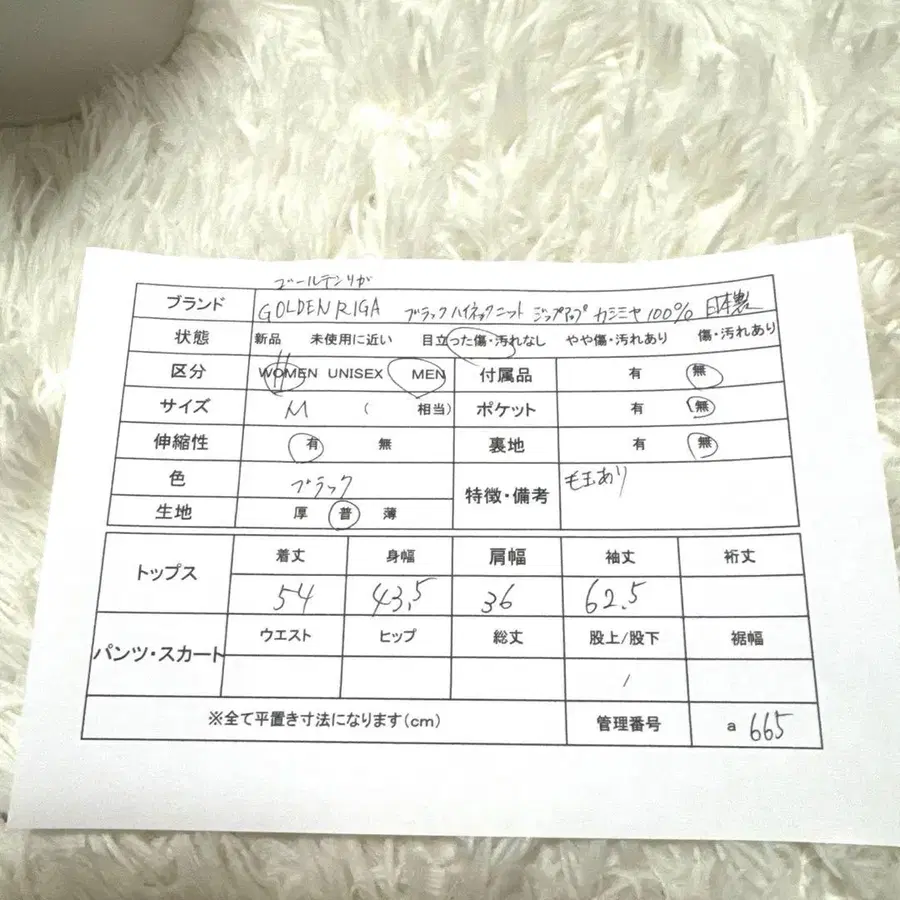 ゴールデンリガ
ブランド GOLDEN RIGA ブラックハイネックニット ジップアップ カシミヤ100% 日本製
状態 新品 未使用に近い 目立った傷・汚れなし やや傷・汚れあり 傷・汚れあり
区分 WOMEN UNISEX MEN 付属品 有 無
サイズ M ( 相当) ポケット 有 無
伸縮性 有 無 裏地 有 無
色 ブラック 特徴・備考 毛玉あり
生地 厚 普 薄
トップス 着丈 身幅 肩幅 袖丈 裄丈
54 43.5 36 62.5
パンツ・スカート ウエスト ヒップ 総丈 股上/股下 裾幅
/
※全て平置き寸法になります(cm) 管理番号 a 665